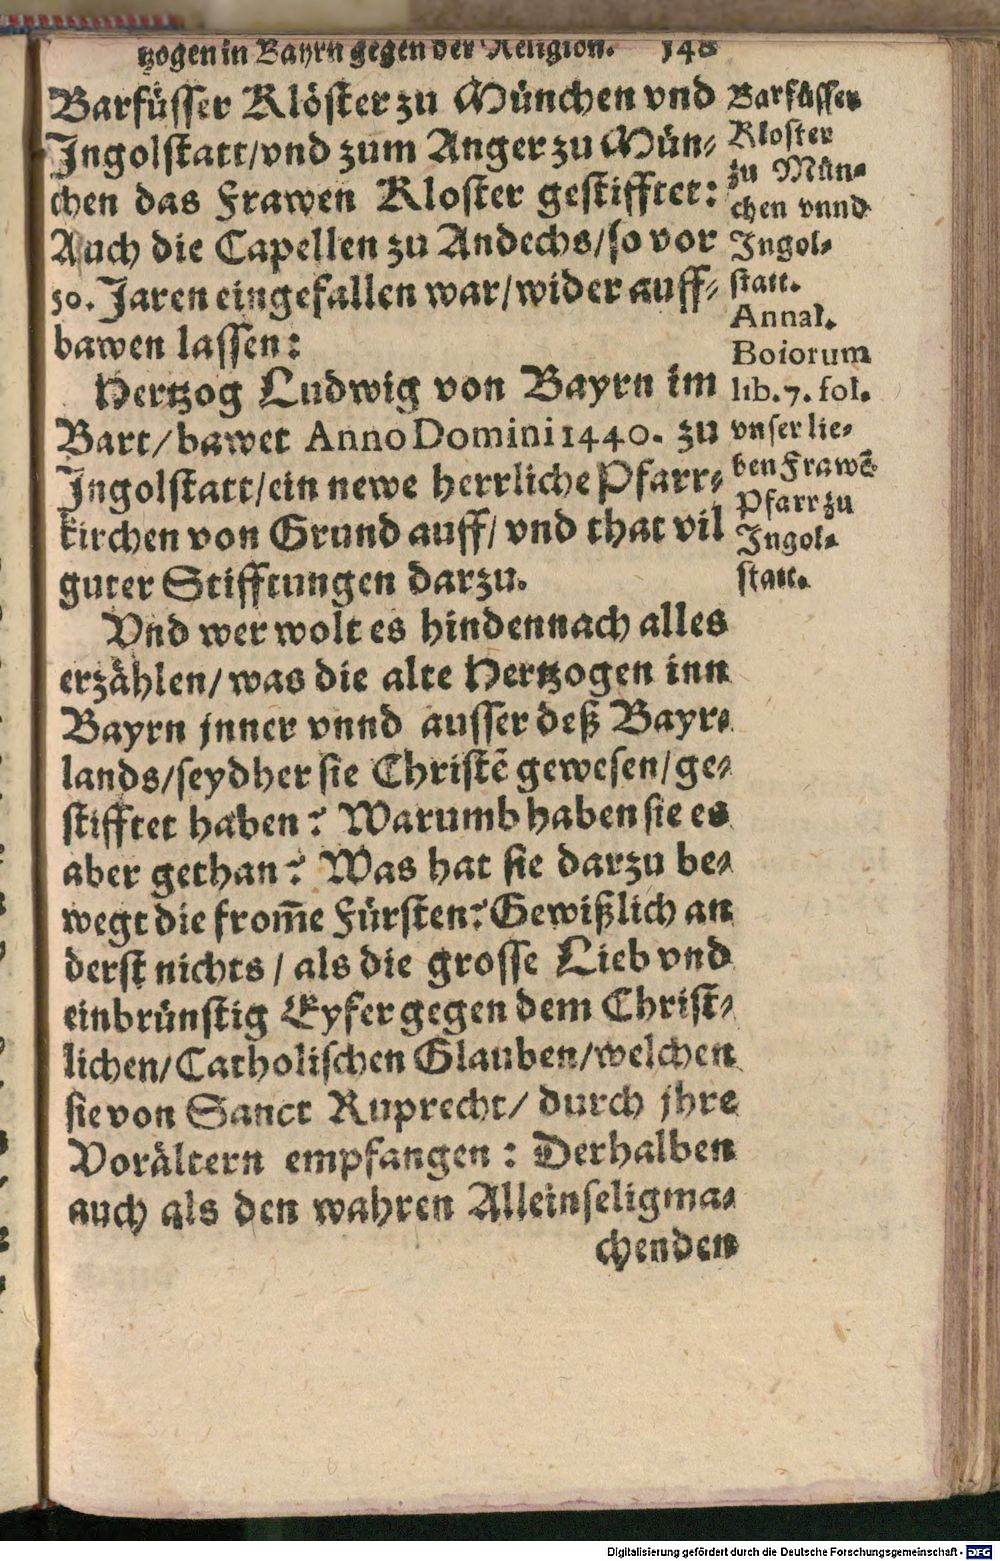 tzogen in Bayrn gegen der Religion. 148
Barfüsser Klöster zu München vnd
Ingolstatt/vnd zum Anger zu Mün-
chen das Frawen Kloster gestifftet:
Auch die Capellen zu Andechs/so vor
50. Jaren eingefallen war/wider auff-
bawen lassen:
Hertzog Ludwig von Bayrn im
Bart/bawet Anno Domini 1440. zu
Ingolstatt/ein newe herrliche Pfarr-
kirchen von Grund auff/vnd that vil
guter Stifftungen darzu.
Vnd wer wolt es hindennach alles
erzählen/was die alte Hertzogen inn
Bayrn jnner vnnd ausser deß Bayr-
lands/seydher sie Christē gewesen/ge-
stifftet haben? Warumb haben sie es
aber gethan? Was hat sie darzu be-
wegt die from̃e Fürsten? Gewißlich an
derst nichts/als die grosse Lieb vnd
einbrünstig Eyfer gegen dem Christ-
lichen/Catholischen Glauben/welchen
sie von Sanct Ruprecht/durch jhre
Vorältern empfangen: Derhalben
auch als den wahren Alleinseligma-
chenden
Barfüsser
Kloster
zu Mün-
chen vnnd
Ingol-
statt.
Annal.
Boiorum
lib. 7. fol.
vnser lie-
ben Frawē
Pfarr zu
Ingol-
statt.
Digitalisierung gefördert durch die Deutsche Forschungsgemeinschaft - DFG